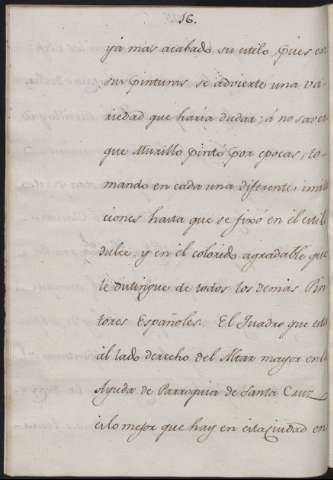 16.
yá mas acabado su estilo, pues en
sus pinturas se advierte una va-
riedad que haria dudar, á no saver
que Murillo pintó por epocas, to-
mando en cada una diferentes imita
ciones hasta que se fixó en el estilo
dulce, y en el colorido agradable que
le distingue de todos los demas Pin
tores Españoles. El Quadro que está
al lado derecho del Altar mayor en la
Ayuda de Parroquia de Santa Cruz
es lo mejor que hay en esta ciudad en